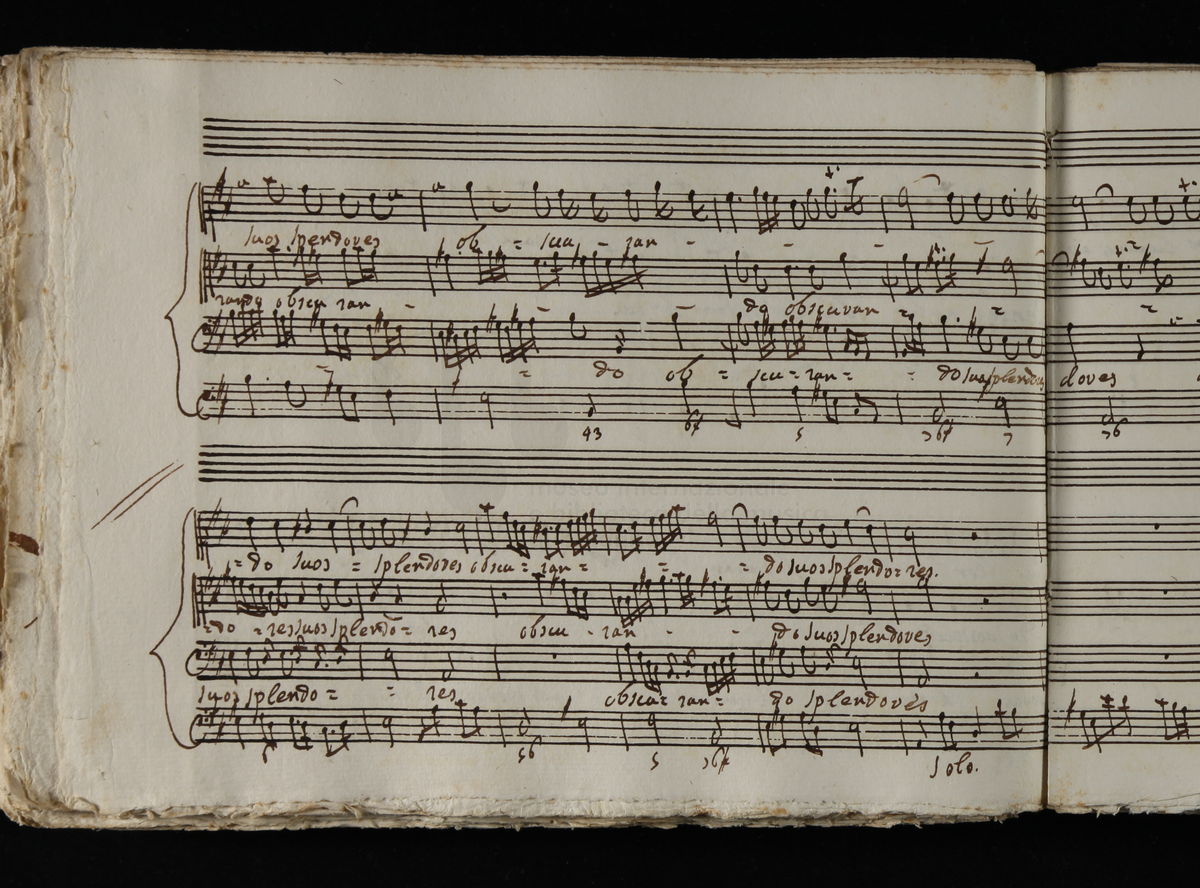 suos splendores ob = scu - ran -
rando obscu ran - do obscuran =
- = do ob = scu = ran = = do suos splendores dores
43 6# 5 76# 7 76
= do suos = splendores obscu = ran = = = do suos splendo = res.
= do = res suos splendo = res obscu - ran - - do suos splendores
suos splendo = = res obscu = ran = do splendores
56 5 76#
Solo.
museo internazionale